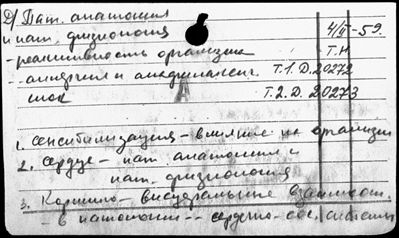 Д) Пат. анатомия
и пат. физиология 4/II-59.
- реактивность организма Т.Н
- аллергия и анафилаксич. Т.1.Д.20272
шок Т.2.Д.20273
1. Сенсибилизация - влияние на организм
2. Сердце - пат. анатомия и
пат. физиология
3. Кортико - висцеральные взаимоот.
- в патологии -- сердечно-сос. системы